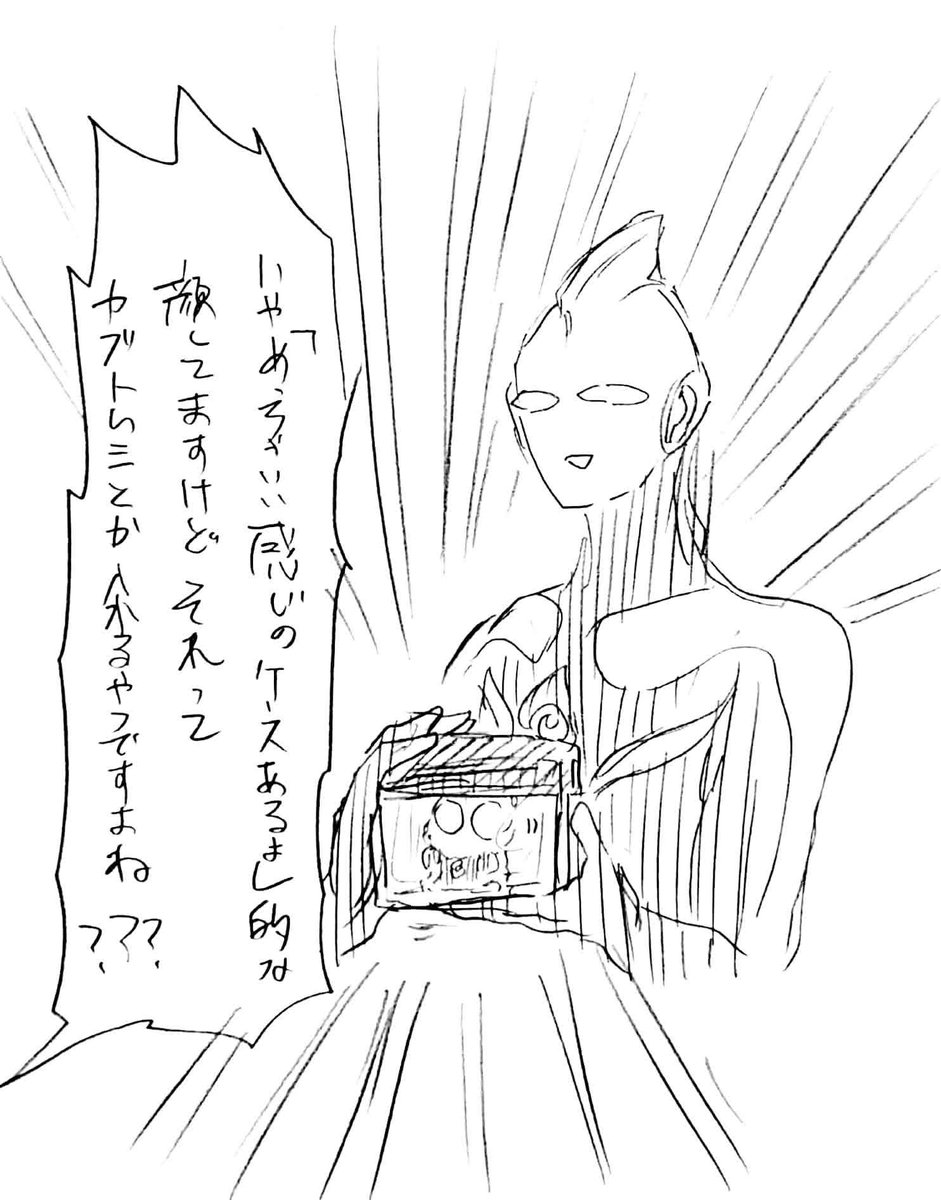 いや「めっちゃいい感じのケースあるよ」的な
顔してますけど それって
カブトムシとか入れるやつですよね???